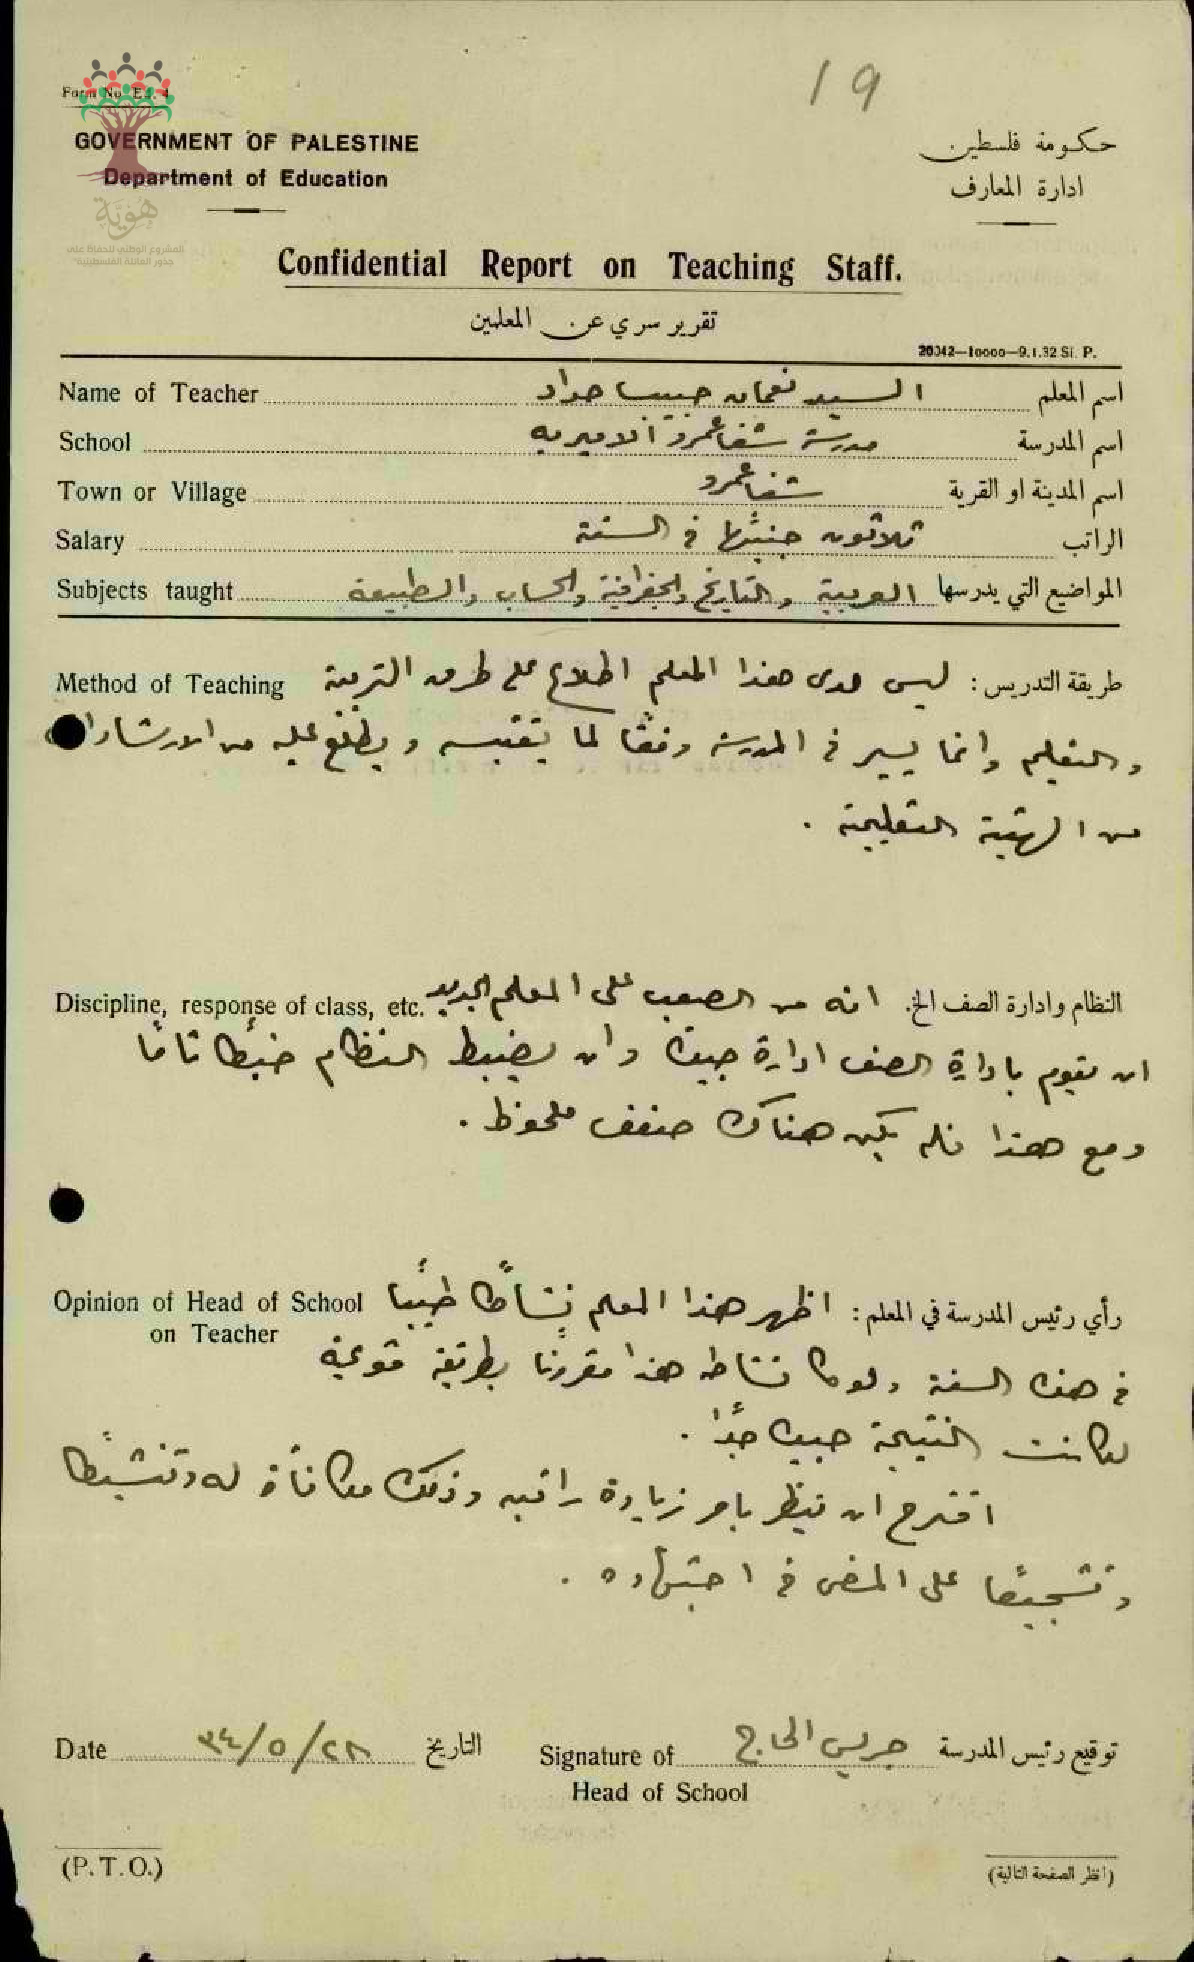 19
Form No. Ed. 4
GOVERNMENT OF PALESTINE
Department of Education
حكومة فلسطين
ادارة المعارف
هُوِيَّة
المشروع الوطني للحفاظ على
جذور العائلة الفلسطينية
Confidential Report on Teaching Staff.
تقرير سري عن المعلمين
20342—10000—9.1.32 Sf. P.
Name of Teacher السيد نعمان حبيب حداد اسم المعلم
School مدرسة شفاعمرو الاميرية اسم المدرسة
Town or Village شفاعمرو اسم المدينة او القرية
Salary ثلاثون جنيهًا في السنة الراتب
Subjects taught العربية والتاريخ والجغرافية والحساب والطبيعة المواضيع التي يدرسها
Method of Teaching طريقة التدريس : ليس لدى هذا المعلم اطلاع على طرق التربية
والتعليم وانما يسير في المدرسة وفقًا لما يقتبسه ويطلع عليه من الارشادات
من الهيئة التعليمية .
Discipline, response of class, etc. النظام وادارة الصف الخ. انه من الصعب على المعلم الجديد
ان يقوم بادارة الصف ادارة جيدة وان يضبط النظام ضبطًا تامًا
ومع هذا فلم يكن هناك ضعف ملحوظ .
Opinion of Head of School رأي رئيس المدرسة في المعلم : اظهر هذا المعلم نشاطًا طيبًا
on Teacher
في هذه السنة ولو كان نشاطه هذا مقرونًا بطريقة قويمة
لكانت النتيجة جيدة جدًا .
اقترح ان ينظر بامر زيادة راتبه وذلك مكافأة له وتنشيطًا
وتشجيعًا على المضى في اجتهاده .
Date ٢٨/٥/٣٤ التاريخ
Signature of جريس الحاج توقيع رئيس المدرسة
Head of School
(P.T.O.)
(انظر الصفحة التالية)